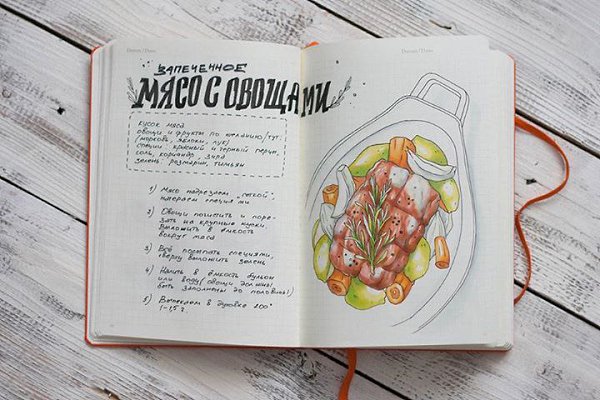 Datum / Date:
Datum / Date:
ЗАПЕЧЕННОЕ
МЯСО С ОВОЩАМИ
кусок мяса
овощи и фрукты по желанию/тут:
(морковь, яблоки, лук)
специи: красный и черный перцы,
соль, кориандр, зира
зелень: розмарин, тимьян
1) Мясо надрезаем "сеткой",
натираем специями
2) Овощи почистить и поре-
зать на крупные куски.
Выложить в ёмкость
вокруг мяса
3) Всё посыпать специями,
сверху выложить зелень
4) Налить в ёмкость бульон
или воду (овощи должны
быть заполнены до половины!)
5) Запекаем в духовке 200°
1-1,5 г.